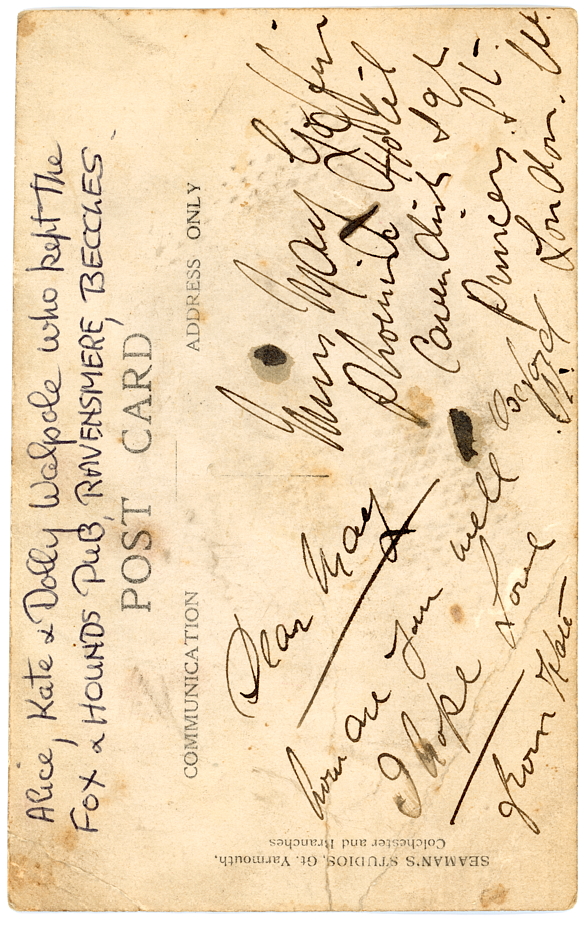 Alice, Kate & Dolly Walpole who kept the
FOX & HOUNDS PUB, RAVENSMERE, BECCLES
POST CARD
COMMUNICATION
ADDRESS ONLY
Dear May
how are you well
I hope Love
from Kate
Miss May
Phoenix Hotel
Cavendish Sqr
Princes St.
Oxford
London. W.
SEAMAN'S STUDIOS, Gt. Yarmouth,
Colchester and Branches